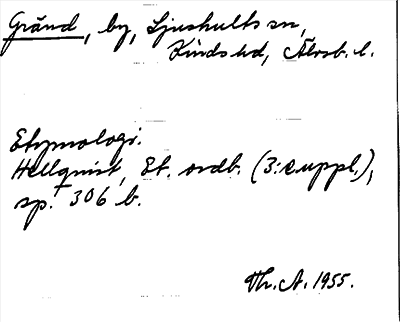 Gränd, by, Ljushults sn,
Kinds hd, Älvsb. l.
Etymologi.
Hellquist, Et. ordb. (3: suppl.),
sp. 306 b.
Th. A. 1955.